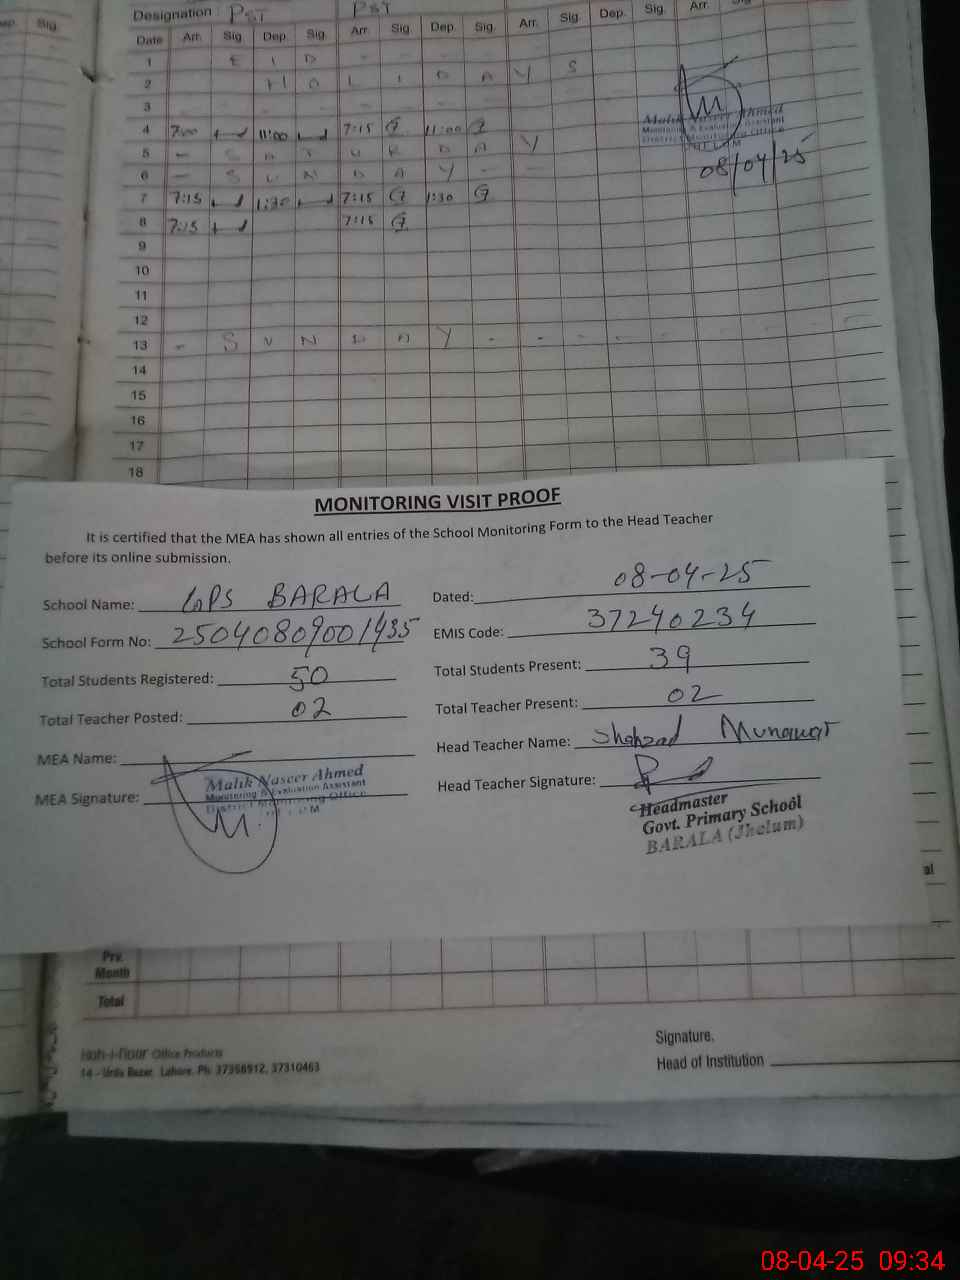 Sig.
Designation PST PST
Date Arr. Sig. Dep. Sig. Arr. Sig. Dep. Sig. Arr. Sig. Dep. Sig. Arr. Sig.
1 E I D
2 H O L I D A Y S
3
4 7:00 11:00 7:15 11:00
5 - S A T U R D A Y
6 - S U N D A Y - -
7 7:15 1:30 7:15 1:30
8 7:15 7:15
9
10
11
12
13 - S U N D A Y - - - - - -
14
15
16
17
18
Malik Naseer Ahmed
Monitoring & Evaluation Assistant
District Monitoring Office
08/04/25
MONITORING VISIT PROOF
It is certified that the MEA has shown all entries of the School Monitoring Form to the Head Teacher
before its online submission.
School Name: GPS BARALA Dated: 08-04-25
School Form No: 25040809001435 EMIS Code: 37240234
Total Students Registered: 50 Total Students Present: 39
Total Teacher Posted: 02 Total Teacher Present: 02
MEA Name: Head Teacher Name: Shahzad Munawar
MEA Signature: Head Teacher Signature:
Malik Naseer Ahmed
Monitoring & Evaluation Assistant
District Monitoring Office
Headmaster
Govt. Primary School
BARALA (Jhelum)
al
Prv.
Month
Total
Koh-i-Noor Office Products
14 - Urdu Bazar, Lahore. Ph: 37356912, 37310463
Signature.
Head of Institution
08-04-25 09:34